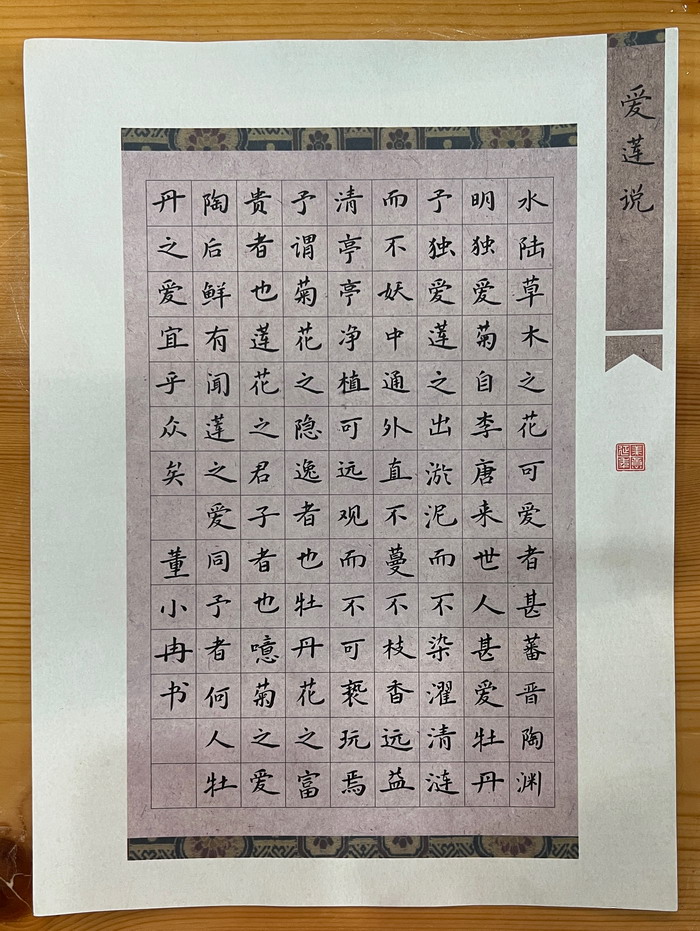 爱莲说
水陆草木之花可爱者甚蕃晋陶渊
明独爱菊自李唐来世人甚爱牡丹
予独爱莲之出淤泥而不染濯清涟
而不妖中通外直不蔓不枝香远益
清亭亭净植可远观而不可亵玩焉
予谓菊花之隐逸者也牡丹花之富
贵者也莲花之君子者也噫菊之爱
陶后鲜有闻莲之爱同予者何人牡
丹之爱宜乎众矣 董小冉书